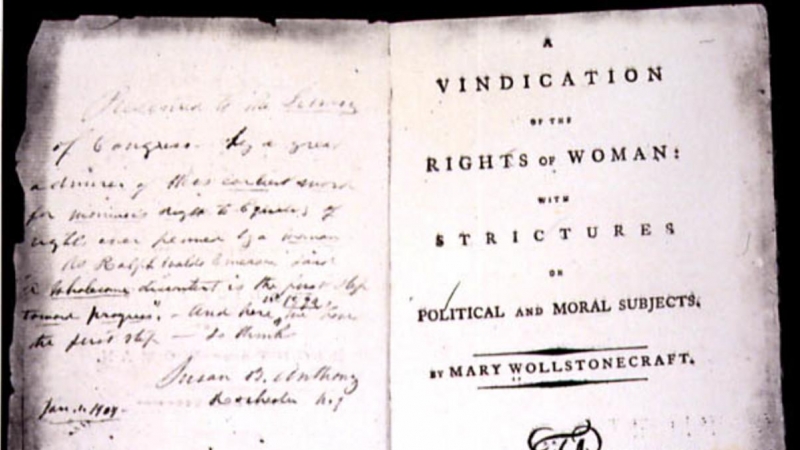 Presented to the Library
of Congress by a great
admirer of this earliest word
for woman's right to Equality of
rights ever penned by a woman
As Ralph Waldo Emerson said
"A Wholesome discontent is the first step
toward progress". - And here in 1792, we have
the first step - so thinks
Susan B. Anthony
Rochester N.Y
Jan. 1. 1904 -
A
VINDICATION
OF THE
RIGHTS OF WOMAN:
WITH
STRICTURES
ON
POLITICAL AND MORAL SUBJECTS.
BY MARY WOLLSTONECRAFT.